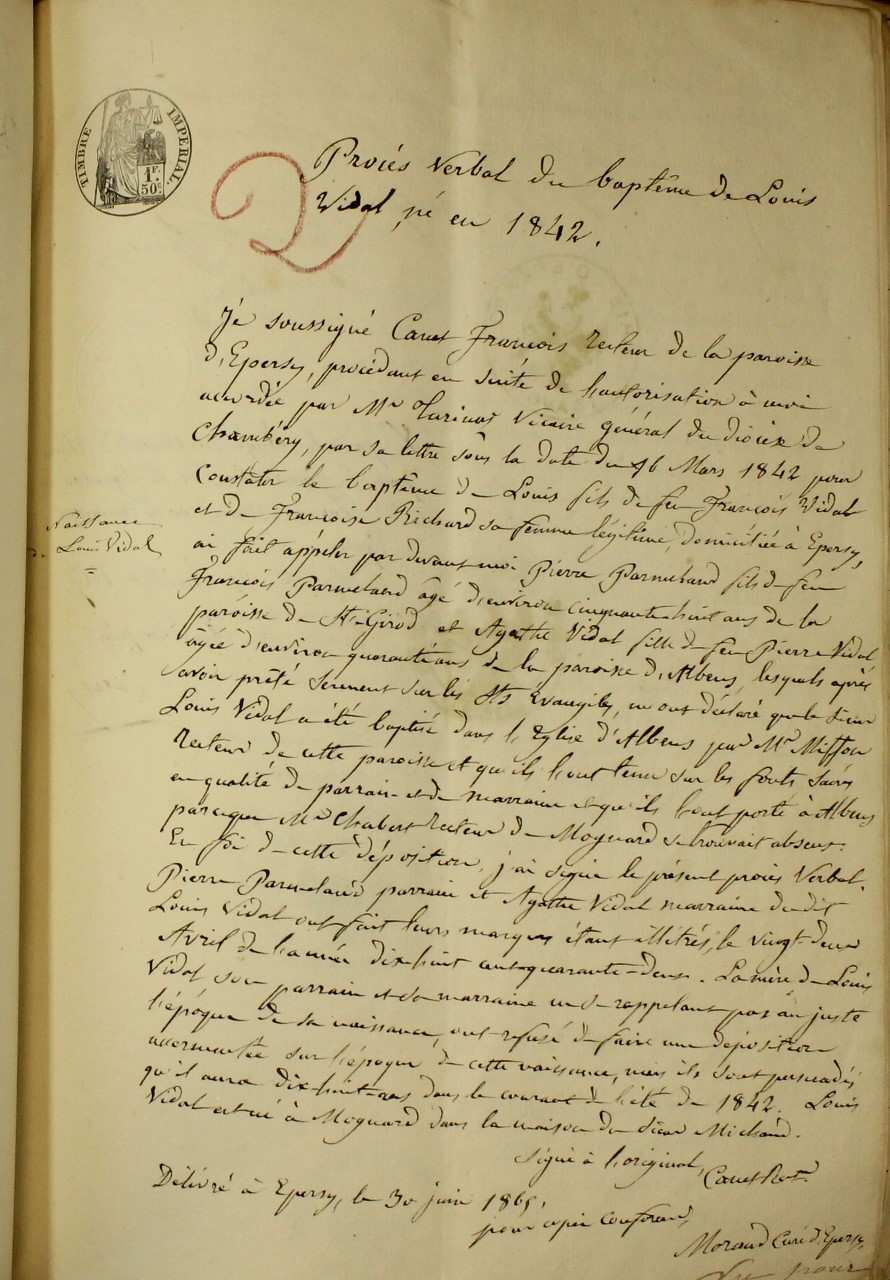 TIMBRE IMPERIAL
1F.
50c.
2
Procès verbal du baptême de Louis
Vidal, né en 1842.
Je soussigné Canet François recteur de la paroisse
d'Epersy, procédant en suite de l'autorisation à moi
accordée par Mr Turinaz Vicaire général du diocèse de
Chambéry, par sa lettre sous la date du 16 Mars 1842 pour
constater le baptême de Louis fils de feu François Vidal
et de Françoise Richard sa femme légitime, domiciliée à Epersy,
ai fait appeler par devant moi Pierre Parmeland fils de feu
François Parmeland âgé d'environ cinquante-huit ans de la
paroisse de St Girod et Agathe Vidal fille de feu Pierre Vidal
âgée d'environ quarante ans de la paroisse d'Albens, lesquels après
avoir prêté serment sur les Sts Evangiles, m'ont déclaré que le sieur
Louis Vidal a été baptisé dans l'Eglise d'Albens par Mr Miffon
recteur de cette paroisse et qu'ils l'ont tenu sur les fonts sacrés
en qualité de parrain et de marraine et qu'ils l'ont porté à Albens
parceque Mr Chabert recteur de Mognard se trouvait absent.
En foi de cette déposition, j'ai signé le présent procès verbal.
Pierre Parmeland parrain et Agathe Vidal marraine du dit
Louis Vidal ont fait leurs marques étant illitrés, le vingt-deux
Avril de l'année dix huit cent quarante-deux. La mère de Louis
Vidal son parrain et sa marraine ne se rappelant pas au juste
l'époque de sa naissance, ont refusé de faire une déposition
assermentée sur l'époque de cette naissance, mais ils sont persuadés
qu'il aura dix huit ans dans le courant de l'été de 1842. Louis
Vidal est né à Mognard dans la maison du sieur Michaud.
Signé à l'original, Canet Rect.
Délivré à Epersy, le 30 juin 1865.
pour copie conforme,
Morand Curé d'Epersy
Vu pour
Naissance
de Louis Vidal